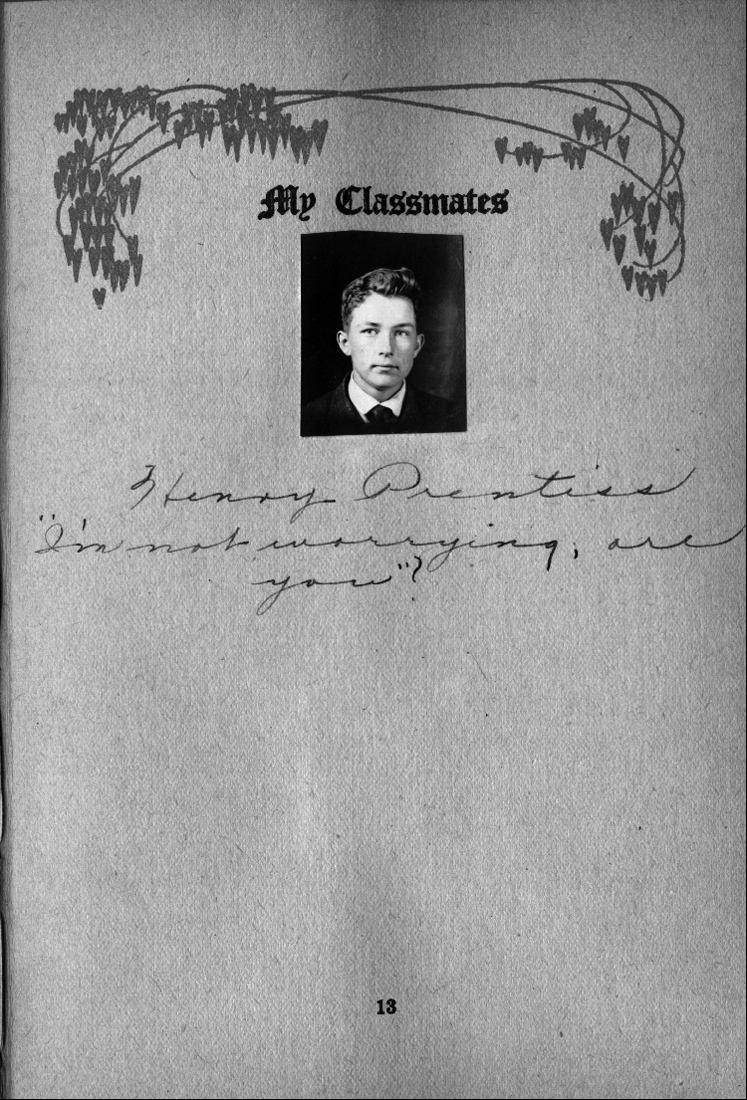 My Classmates
Henry Prentiss
"I'm not worrying, are
you"?
13